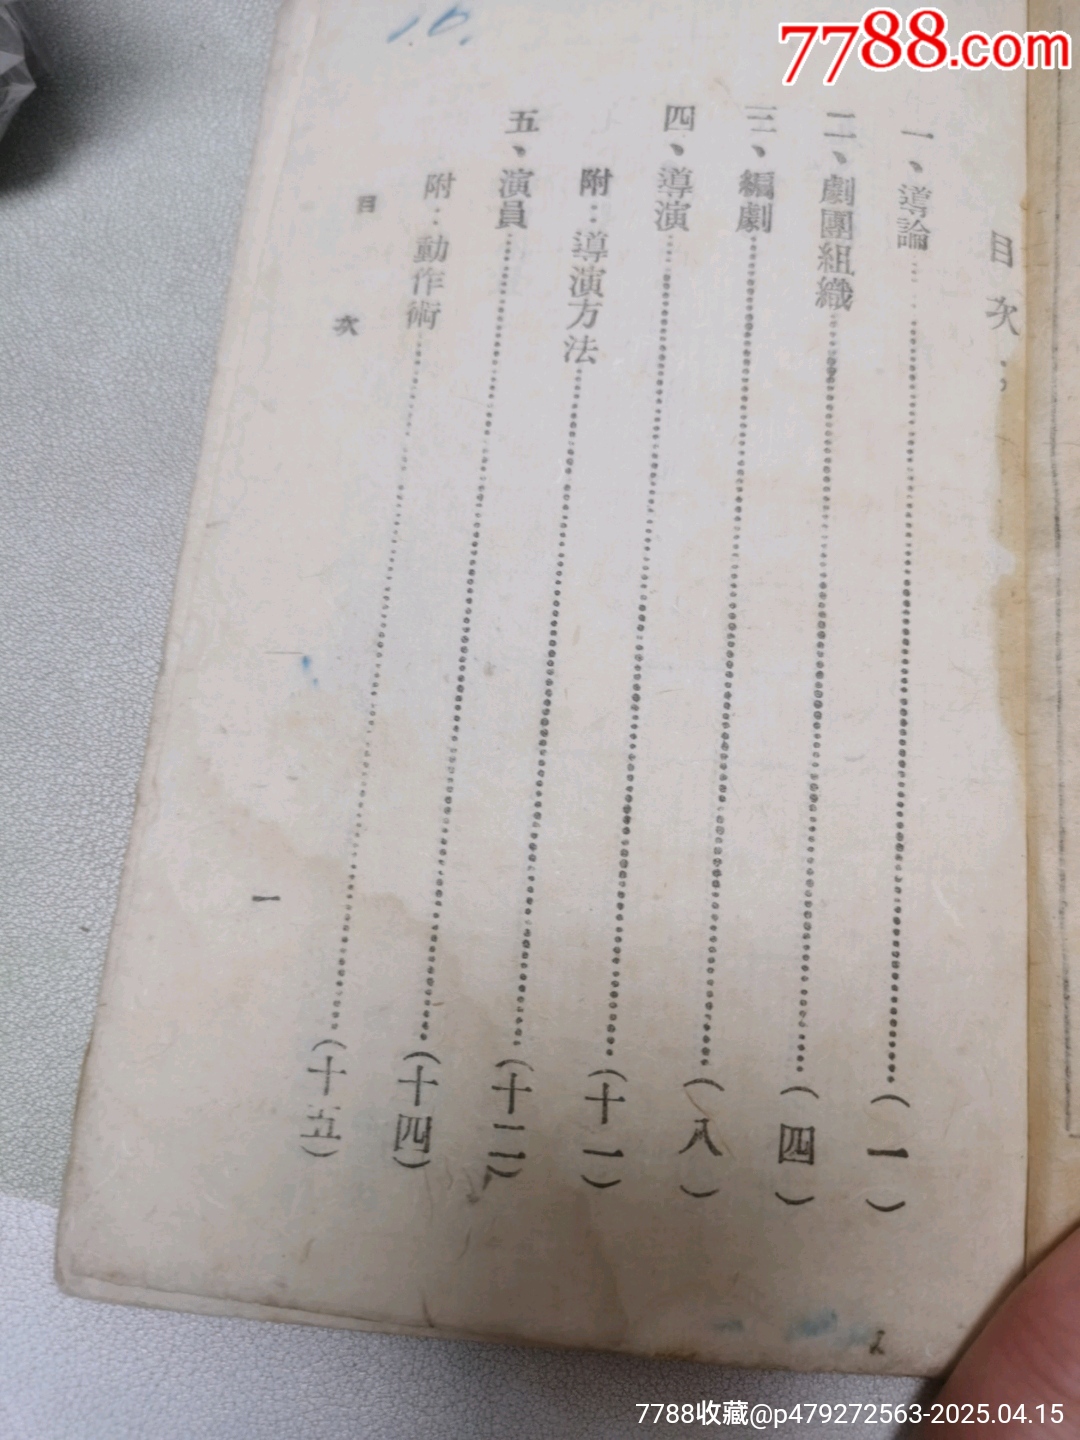 7788.com
目次：
一、導論……(一)
二、劇團組織……(四)
三、編劇……(八)
四、導演……(十一)
附：導演方法……(十二)
五、演員……(十四)
附：動作術……(十五)
目次
一
2
7788收藏@p479272563-2025.04.15